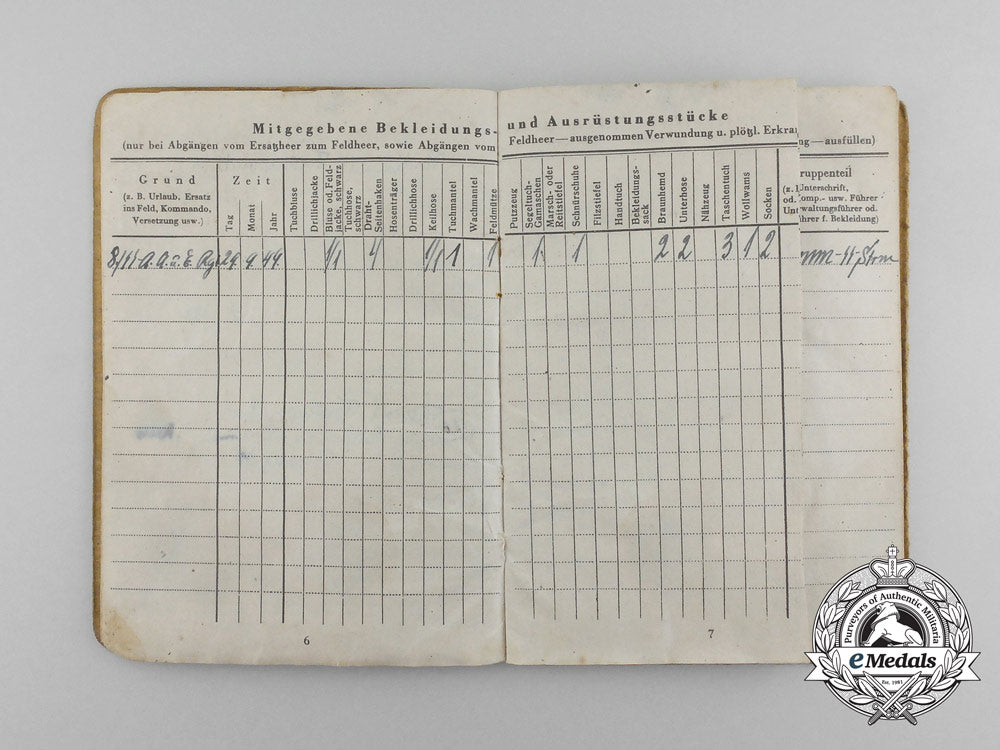 Mitgegebene Bekleidungs- und Ausrüstungsstücke
(nur bei Abgängen vom Ersatzheer zum Feldheer, sowie Abgängen vom Feldheer—ausgenommen Verwundung u. plötzl. Erkra
ng—ausfüllen)
Grund
(z. B. Urlaub. Ersatz
ins Feld, Kommando,
Versetzung usw.)
Zeit
Tag
Monat
Jahr
Tuchbluse
Drillichjacke
Bluse od. Feld-
jacke, schwarz
Tuchhose,
schwarz
Draht-
Seitenhaken
Hosenträger
Drillichhose
Keilhose
Tuchmantel
Wachmantel
Feldmütze
Putzzeug
Segeltuch-
Gamaschen
Marsch- oder
Reitstiefel
Schnürschuhe
Filzstiefel
Handtuch
Bekleidungs-
sack
Braunhemd
Unterhose
Nähzeug
Taschentuch
Wollwams
Socken
ruppenteil
(z. Unterschrift,
od. omp.- usw. Führer
Unt waltungsführer od.
ührer f. Bekleidung)
29 9 44 1/1 4 1/1 1 1 1 1 2 2 3 1 2
6
7
Purveyors of Authentic Militaria
eMedals
Est. 1981